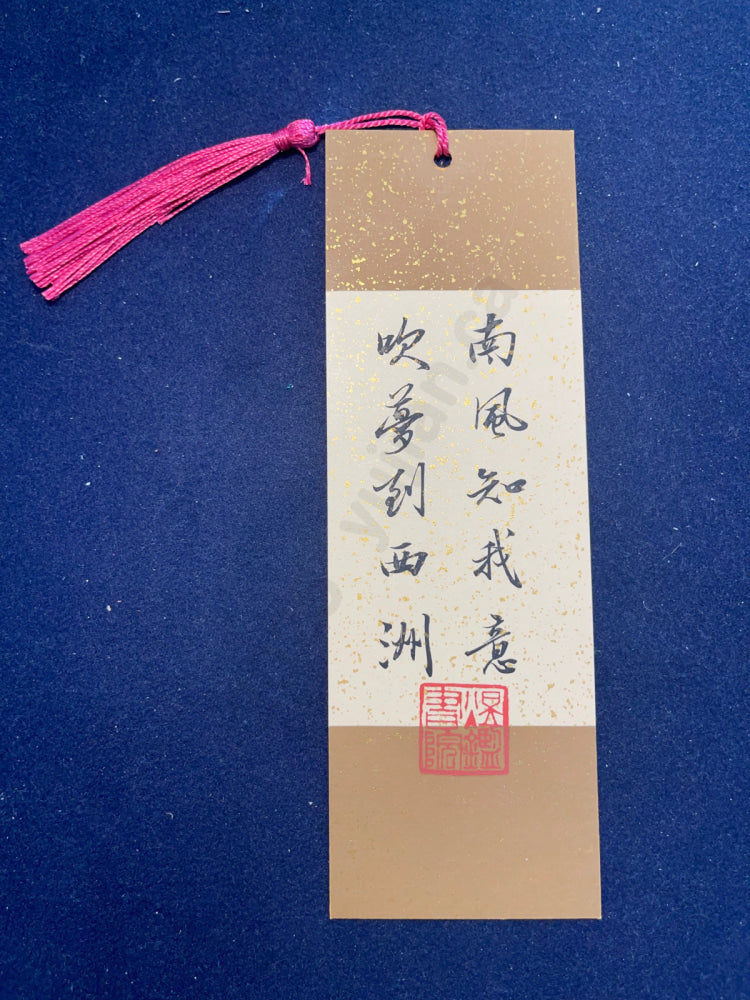 南風知我意
吹夢到西洲
書院